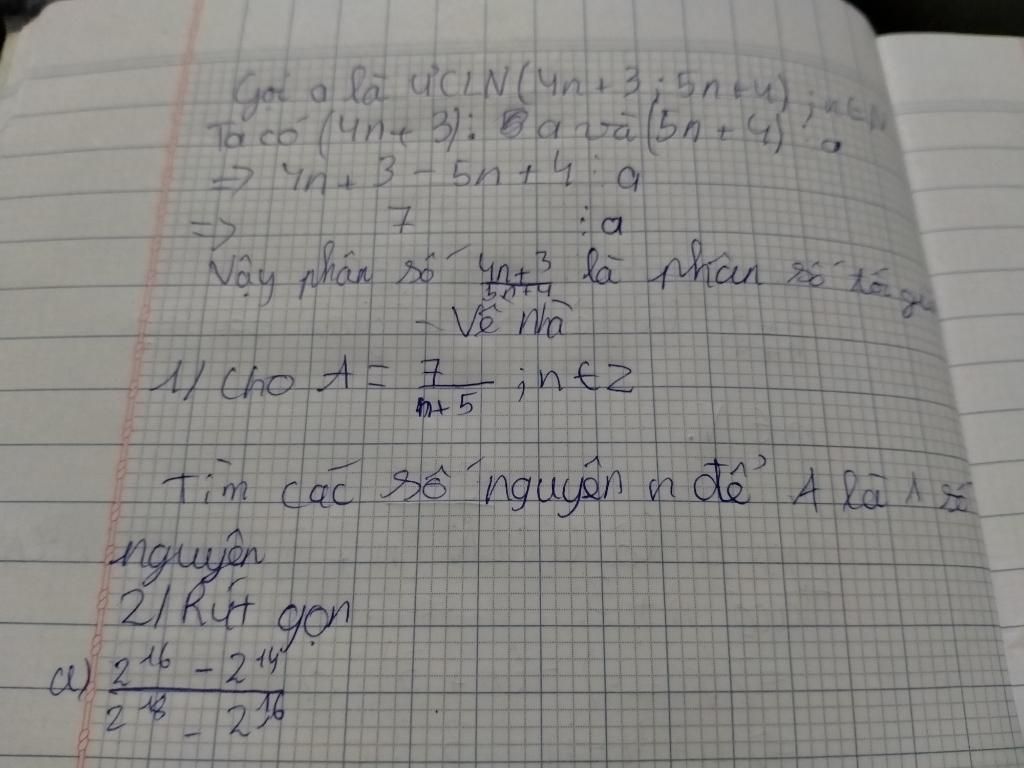 Gọi a là ƯCLN(4n+3; 5n+4); n∈N
Ta có (4n+3)⋮ a và (5n+4)⋮a
=> 4n+3-5n+4⋮a
=> 7 ⋮a
Vậy phân số 4n+3/5n+4 là phân số tối giả
- Về nhà
1/ Cho A = 7/n+5 ; n∈Z
Tìm các số nguyên n để A là 1 số
nguyên
2/ Rút gọn
a) 2^16 - 2^14 / 2^18 - 2^16